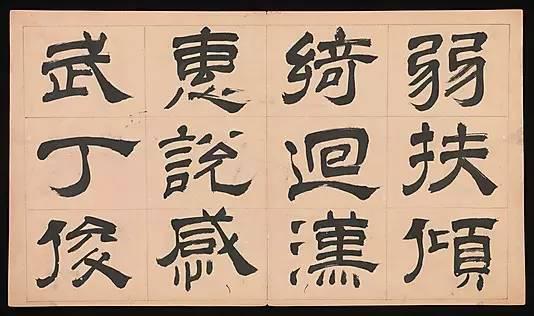 弱扶傾
綺迴漢
惠說感
武丁俊